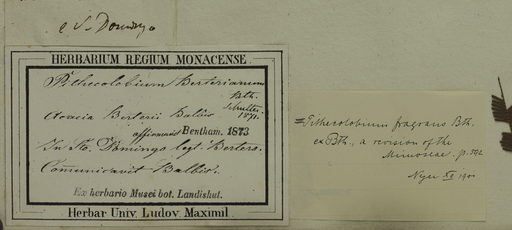 e S. Domingo
HERBARIUM REGIUM MONACENSE.
Pithecolobium Berterianum
Bth.
Acacia Berterii Balbis
Schultes
1871.
affirmavit Bentham. 1873
In St. Domingo legt. Bertero.
Communicavit Balbis.
Ex herbario Musei bot. Landishut.
Herbar Univ. Ludov. Maximil.
=Pithecolobium fragrans Bth.
ex Bth., a revision of the
Mimoseae. p. 592
XI 1901